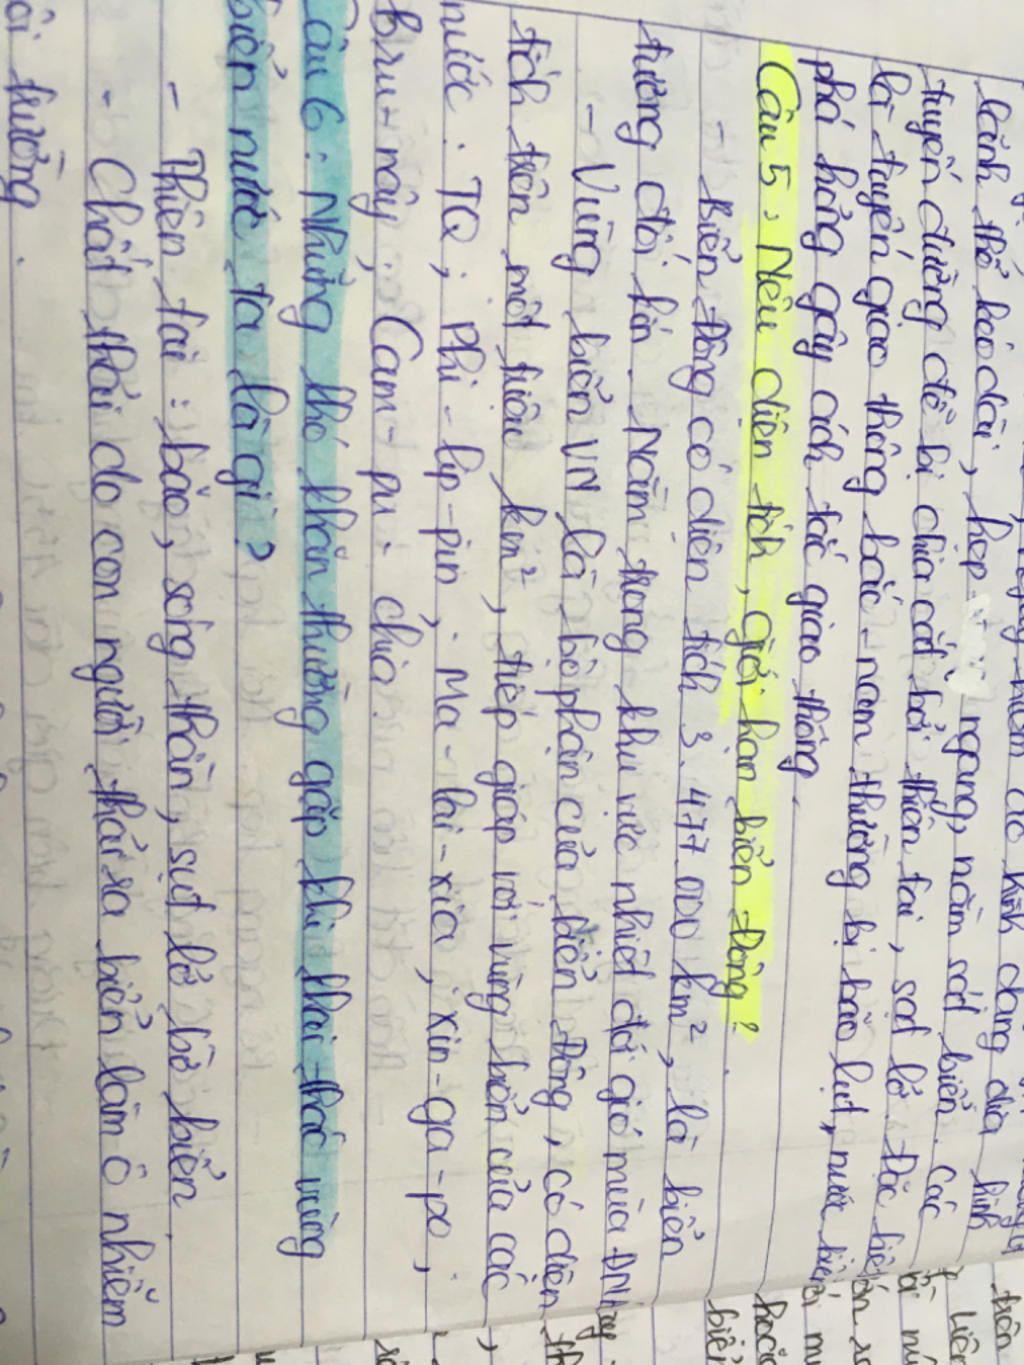 hiểm do hình dạng địa hình
lãnh thổ kéo dài, hẹp ngang, nằm sát biển. Các
tuyến đường dễ bị chia cắt bởi thiên tai, sạt lở. Đặc biệt
là tuyến giao thông bắc - nam thường bị bão lụt, nước biển
phá hỏng gây ách tắc giao thông.
Câu 5: Nêu diện tích, giới hạn biển Đông?
- Biển Đông có diện tích 3.477.000 km², là biển
tương đối kín. Nằm trong khu vực nhiệt đới gió mùa ĐNÁ
- Vùng biển VN là bộ phận của biển Đông, có diện
tích trên một triệu km², tiếp giáp với vùng biển của các
nước: TQ; Phi-lip-pin; Ma-lai-xia; xin-ga-po;
Bru-nây; Cam-pu-chia.
Câu 6: Những khó khăn thường gặp khi khai thác vùng
biển nước ta là gì?
- Thiên tai: bão, sóng thần, sụt lở bờ biển.
- Chất thải do con người thải ra biển làm ô nhiễm
môi trường.